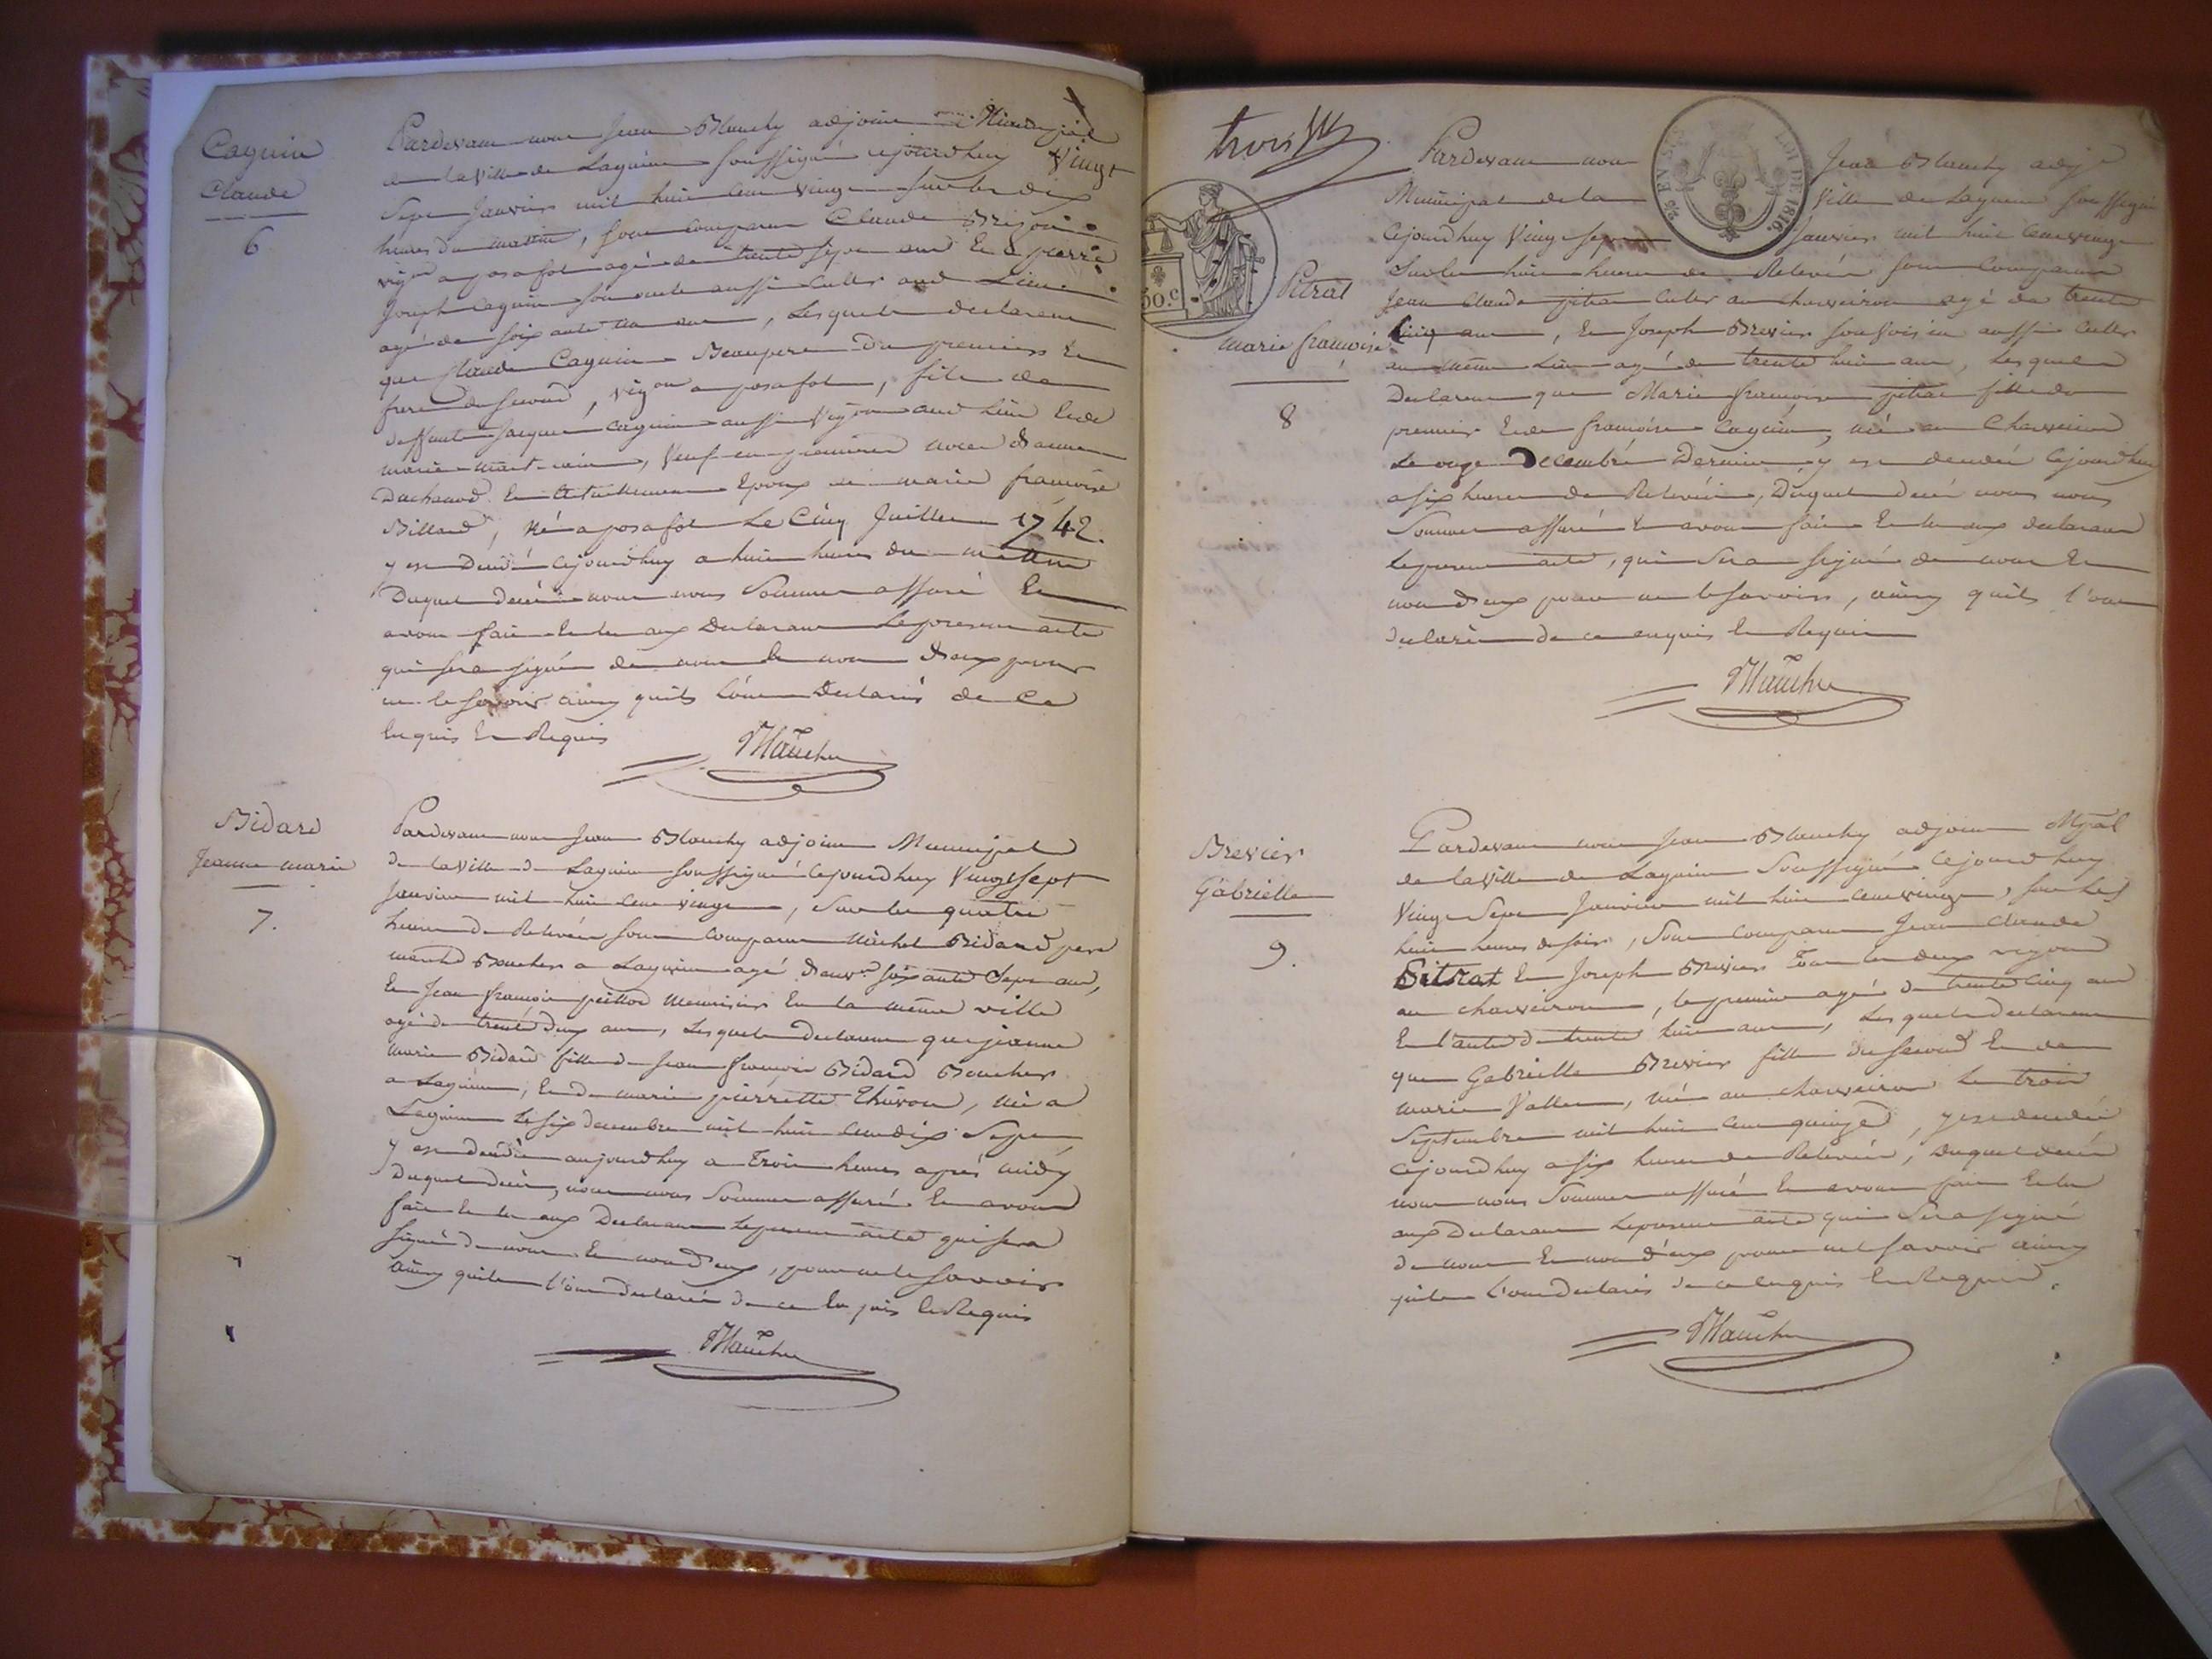 Caguin
Claude
6
Pardevant nous Jean Blanchy adjoint
de la Ville de Lagnieu soussigné cejourdhuy Vingt
Sept Janvier mil huit cent vingt sur les dix
heures du matin, sont comparu Claude
vigon a posafol agé de trente sept ans Et pierre
Joseph Caguin son oncle aussi Cultr aud Lieu
agé de soixante ans, Lesquels declarent
que Claude Caguin Beaupere du premier Et
frere du second, vigon a posafol, fils de
deffunt Jacques Caguin aussi Vigon aud lieu Et de
marie, Veuf en premiere noces
Duchaud Et actuellement Epoux de marie francoise
Billard, né a posafol Le Cinq Juillet 1742.
y est Decedé cejourdhuy a huit heures du matin
Duquel decés nous nous Sommes assuré Et
avons fait Lecture aux Declarans Le present acte
qui sera signé de nous Et non d'eux pour
ne le savoir ainsy quils l'ont Declarés de ce
Enquis Et Requis
Blanchy
Bidard
Jeanne marie
7.
Pardevant nous Jean Blanchy adjoint Municipal
de la Ville de Lagnieu soussigné Cejourdhuy Vingt sept
Janvier mil huit cent vingt, Sur les quatre
heures de Relevée sont comparu Michel Bidard pere
marchd Boucher a Lagnieu agé d'envn soixante Sept ans,
Et Jean francois peillod Menuisier En la même ville
agé de trente deux ans, Lesquels Declarent que jeanne
marie Bidard fille de Jean francois Bidard Boucher
a Lagnieu, Et de marie pierrette Thivon, née a
Lagnieu Le six decembre mil huit cent dix Sept
y est decedée aujourdhuy a Trois heures après midy
Duquel decés, nous nous Sommes assuré Et avons
fait Lecture aux Declarans Le present acte qui sera
signé de nous Et non d'eux, pour ne le savoir
ainsy quils l'ont declarés de ce Enquis Et Requis
Blanchy
trois
50.c
EN SUS
LOI DE 1816
Pitrat
marie francoise
8
Pardevant nous Jean Blanchy adjt
Municipal de la Ville de Lagnieu soussigné
Cejourdhuy Vingt sept Janvier mil huit cent vingt
Sur les huit heures de Relevée sont Comparu
Jean Claude pitrat Cultr au charveiron agé de trente
Cinq ans, Et Joseph Brevier son voisin aussi Cultr
au même Lieu agé de trente huit ans, Lesquels
Declarent que Marie francoise pitrat fille du
premier Et de francoise Caguin, née au Charveiron
Le onze Decembre Dernier y est decedée Cejourdhuy
a six heures de Relevée, Duquel decés nous nous
Sommes assuré Et avons fait Lecture aux declarans
Le present acte, qui Sera signé de nous Et
non d'eux pour ne le savoir, ainsy quils l'ont
declaré de ce enquis Et Requis
Blanchy
Brevier
Gabrielle
9.
Pardevant nous Jean Blanchy adjoint Mpal
de la Ville de Lagnieu Soussigné Cejourdhuy
Vingt Sept Janvier mil huit cent vingt, sur Les
huit heures du soir, Sont Comparu Jean Claude
Pitrat Et Joseph Brevier Tous les deux vigons
au charveiron, le premier agé de trente Cinq ans
Et l'autre de trente huit ans, Lesquels declarent
que Gabrielle Brevier fille du second Et de
marie Vallet, née au charveiron Le trois
Septembre mil huit cent quinze, y est decedée
Cejourdhuy a six heures de Relevée, Duquel decés
nous nous Sommes assuré Et avons fait Lecture
aux declarans Le present acte qui Sera signé
de nous Et non d'eux pour ne le savoir ainsy
quils l'ont declarés de ce Enquis Et Requis.
Blanchy